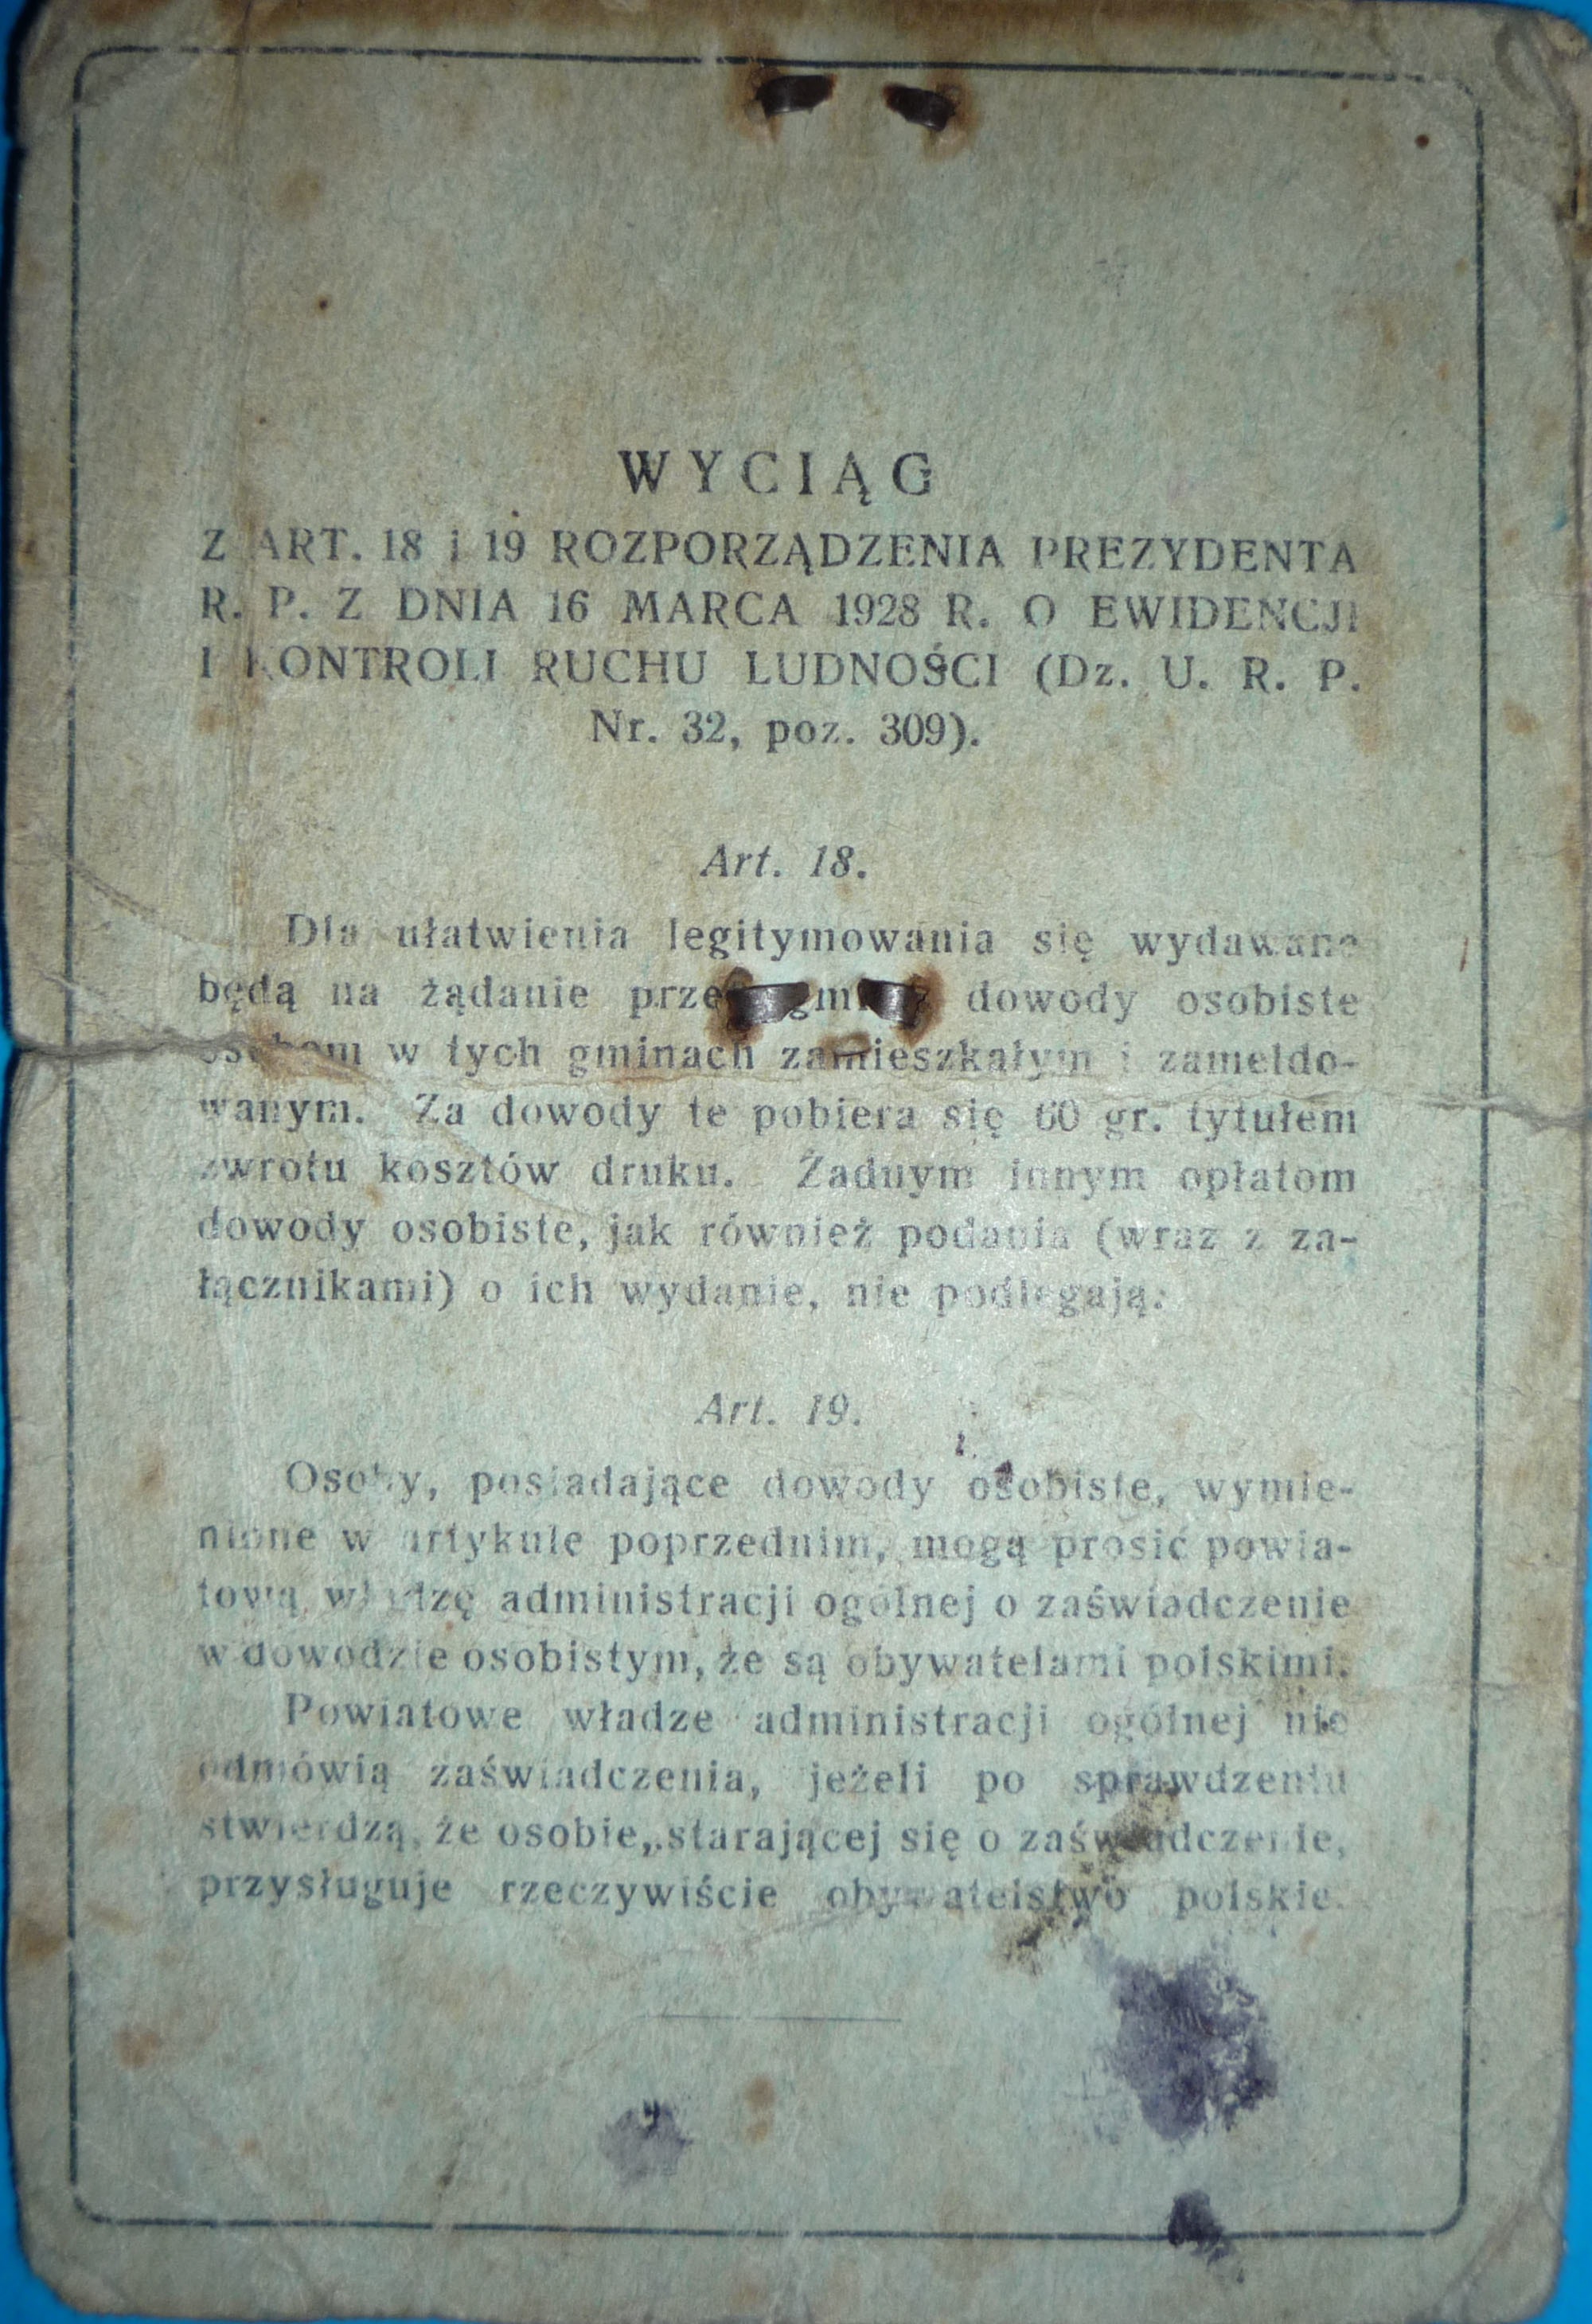 WYCIĄG
Z ART. 18 i 19 ROZPORZĄDZENIA PREZYDENTA
R. P. Z DNIA 16 MARCA 1928 R. O EWIDENCJI
I KONTROLI RUCHU LUDNOŚCI (Dz. U. R. P.
Nr. 32, poz. 309).
Art. 18.
Dla ułatwienia legitymowania się wydawane
będą na żądanie przez gminy dowody osobiste
osobom w tych gminach zamieszkałym i zameldo-
wanym. Za dowody te pobiera się 60 gr. tytułem
zwrotu kosztów druku. Żadnym innym opłatom
dowody osobiste, jak również podania (wraz z za-
łącznikami) o ich wydanie, nie podlegają.
Art. 19.
Osoby, posiadające dowody osobiste, wymie-
nione w artykule poprzednim, mogą prosić powia-
tową władzę administracji ogólnej o zaświadczenie
w dowodzie osobistym, że są obywatelami polskimi.
Powiatowe władze administracji ogólnej nie
odmówią zaświadczenia, jeżeli po sprawdzeniu
stwierdzą, że osobie, starającej się o zaświadczenie,
przysługuje rzeczywiście obywatelstwo polskie.